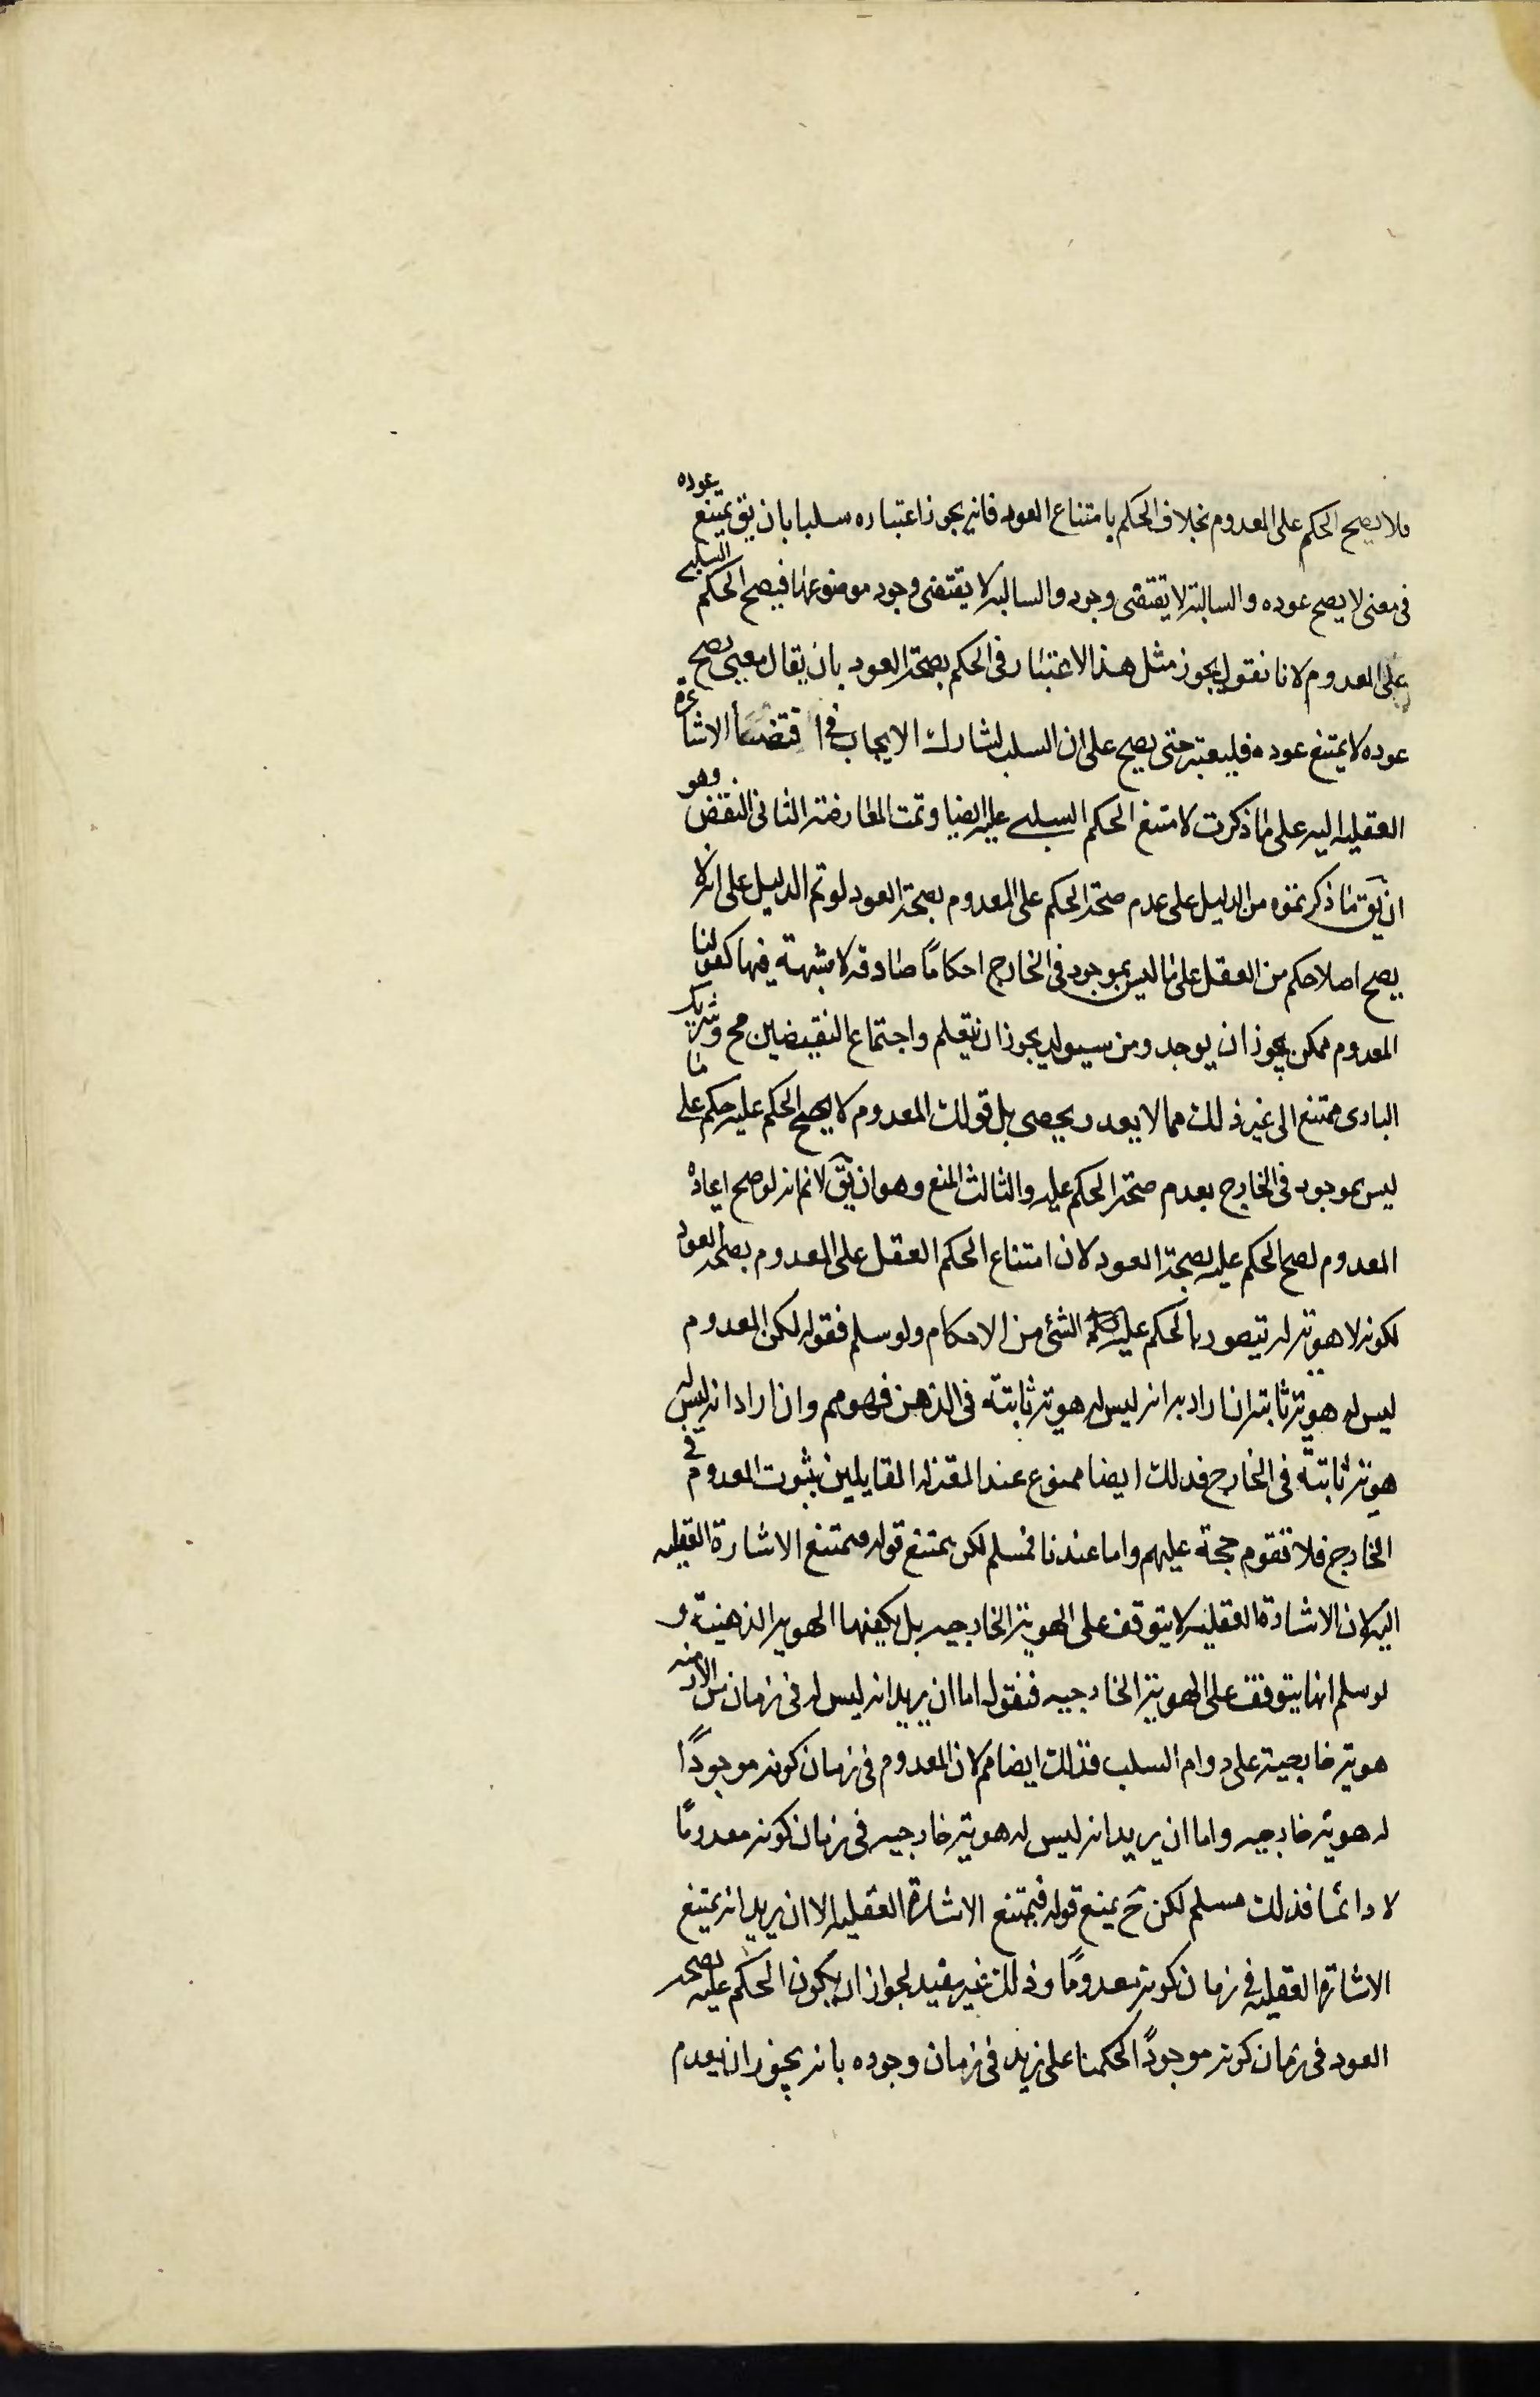 فلا يصح الحكم على المعدوم بخلاف الحكم بامتناع العود فانه يجوز اعتباره سلبا بان يق يمتنع عوده
فى معنى لا يصح عوده والسالبة لا تقتضى وجود والسالبه لا يقتضى وجود موضوعها فيصح الحكم السلبى
على المعدوم لانا نقول يجوز مثل هذا الاعتبار فى الحكم بصحة العود بان يقال معنى يصح
عوده لا يمتنع عوده فليعتبر حتى يصح على ان السلب لشارك الايجاب فى اقتضاء الاشارة
العقليه اليه على ما ذكرت لامتنع الحكم السلبى عليه ايضا وتمت المعارضة الثانى النقض وهو
ان يق ما ذكرتموه من الدليل على عدم صحة الحكم على المعدوم بصحة العود لو تم الدليل على انه لا
يصح اصلا حكم من العقل على ما ليس بموجود فى الخارج احكاما صادقه لا شبهة فيها كقولنا
المعدوم ممكن يجوز ان يوجد ومن سيولد يجوز ان يتعلم واجتماع النقيضين مح وشريك
البارى ممتنع الى غير ذلك مما لا يعد ويحصى بل قولك المعدوم لا يصح الحكم عليه حكم على ما
ليس بموجود فى الخارج بعدم صحة الحكم عليه والثالث المنع وهو ان يق لانم انه لو صح اعادة
المعدوم لصح الحكم عليه بصحة العود لان امتناع الحكم العقل على المعدوم بصحة العود
لكونه لا هوية له يتصور بالحكم عليه الشئ من الاحكام ولو سلم فقوله لكن المعدوم
ليس له هوية ثابتة ان اراد به انه ليس له هوية ثابتة فى الذهن فهو مم وان اراد انه ليس له
هوية ثابتة فى الخارج فذلك ايضا ممنوع عند المعتزله القايلين بثبوت المعدوم فى
الخارج فلا تقوم حجة عليهم واما عندنا فمسلم لكن يمتنع قوله فيمتنع الاشارة العقليه
اليه لان الاشارة العقليه لا يتوقف على الهوية الخارجيه بل يكفيها الهوية الذهنية و
لو سلم انها يتوقف على الهوية الخارجيه فنقول اما ان يريد انه ليس له فى زمان من الازمنه
هوية خارجية على دوام السلب فذلك ايضا مم لان المعدوم فى زمان كونه موجودًا
له هوية خارجيه واما ان يريد انه ليس له هوية خارجيه فى زمان كونه معدومًا
لا دائما فذلك مسلم لكن ح يمنع قوله فيمتنع الاشارة العقليه الا ان يريد انه يمتنع
الاشارة العقليه فى زمان كونه معدومًا وذلك غير مفيد لجواز ان يكون الحكم عليه بصحة
العود فى زمان كونه موجودًا كحكمنا على زيد فى زمان وجوده بانه يجوز ان يعدم